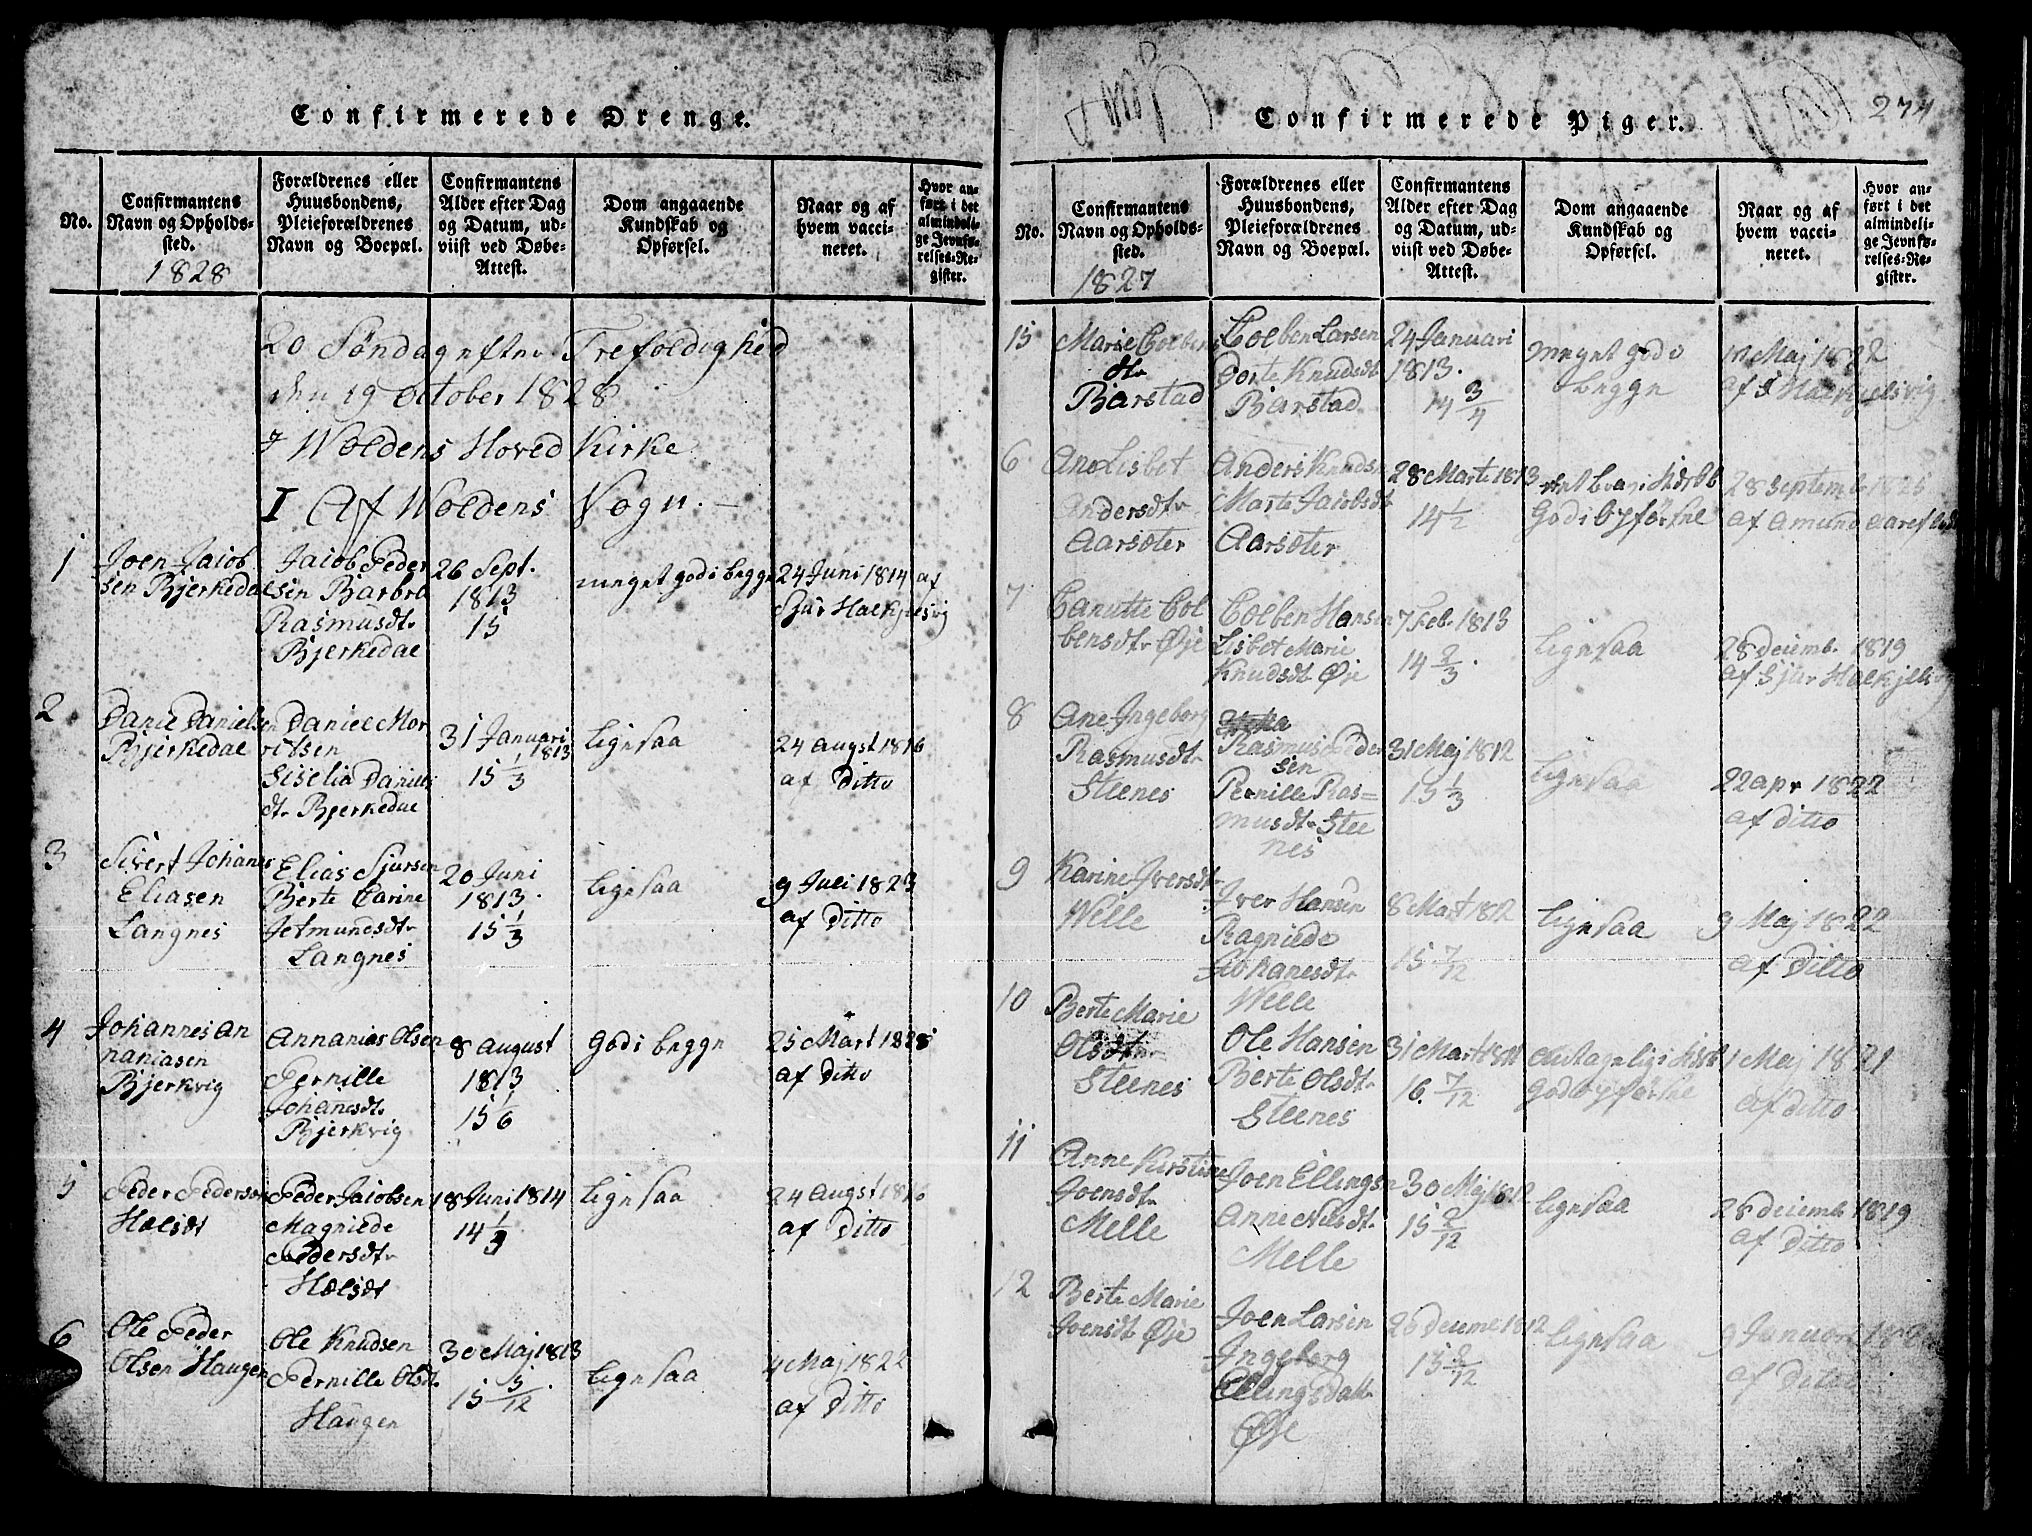 Confirmerede Drenge.
No.
Confirmantens
Navn og Opholds-
sted.
1828
Forældrenes eller
Huusbondens,
Pleieforældrenes
Navn og Boepæl.
Confirmantens
Alder efter Dag
og Datum, ud-
viist ved Døbe-
Attest.
Dom angaaende
Kundskab og
Opførsel.
Naar og af
hvem vacci-
neret.
Hvor an-
ført i det
almindeli-
ge Jevnfø-
relses-Re-
gister.
20 Søndag efter Trefoldighed
den 19 October 1828
i Woldens Hoved Kirke
I Af Woldens Sogn.
1
Joen Jacob
sen Bjerkedal
Jacob Peder
sen Barbro
Rasmusdt.
Bjerkedal
26 Sept.
1813
15
meget god i begge
24 Juni 1814 af
Sjur Halkjelsvig
2
Daniel Danielsen
Bjerkedal
Daniel Mor
ritsen
Siselia Daniels
dt. Bjerkedal
31 Januari
1813
15 1/3
ligesaa
24 augst 1816
af Ditto
3
Sivert Johanes
Eliasen
Langnes
Elias Sjursen
Berte Carine
Jetmundsdt.
Langnes
20 Juni
1813.
15 1/3
ligesaa
9 Juli 1823
af Ditto
4
Johannes An
naniasen
Bjerkvig
Annanias Olsen
Pernille
Johanesdt.
Bjerkvig
8 August
1813
15 1/6
God i begge
25 Mart 1828
af Ditto
5
Peder Pedersen
Hølsdt
Peder Jacobsen
Magnilde
Pedersdt.
Hølsdt
18 Juni 1814
14 1/3
ligesaa
24 augst 1816
af Ditto
6
Ole Peder
Olsen Haugen
Ole Knudsen
Pernille Olsdt.
Haugen
30 Maj 1813
15 5/12.
ligesaa
4 Maj 1822
af Ditto
Confirmerede Piger.
274
No.
Confirmantens
Navn og Opholds-
sted.
1827
Forældrenes eller
Huusbondens,
Pleieforældrenes
Navn og Boepæl.
Confirmantens
Alder efter Dag
og Datum, ud-
viist ved Døbe-
Attest.
Dom angaaende
Kundskab og
Opførsel.
Naar og af
hvem vacci-
neret.
Hvor an-
ført i det
almindeli-
ge Jevnfø-
relses-Re-
gister.
15
Marie Colbens
dt.
Barstad
Colben Larsen
Dorte Knudsdt
Barstad
24 Januari
1813.
14 3/4
meget god i
begge
Maj 1822
af S Halkjelsvig
6
Ane Lisbet
Andersdt.
Aarsæter
Anders Knuds.
Marte Jacobsdt
Aarsæter
28 Marts 1813
14 1/2
God i Opførsel
28 Septemb 1825
af Amund Aareflodt
7
Canutte Col
bensdt. Øje
Colben Hansen
Lisbet Marie
Knudsdt. Øje
7 Feb. 1813
14 2/3.
ligesaa
28 Decemb. 1819
af Sjur Halkjelsvig
8
Ane Ingeborg
Rasmusdt.
Steenes
Rasmus Peder
sen
Pernille Ras=
musdt. Stee
nes
31 Maj 1812
15 1/3
ligesaa
22 apr 1822
af Ditto
9
Karine Iversdt.
Welle
Iver Hansen
Ragnilde
Johanesdt.
Welle
8 Mart 1812
15 7/12
ligesaa
9 Maj 1822
af Ditto
10
Berte Marie
Olsdt.
Steenes
Ole Hansen
Berte Olsdt.
Steenes
31 Mart 1811
16. 7/12
god Opførsel
1 Maj 1821
af ditto
11
Anne Kirstine
Joensdt.
Melle
Joen Ellingsen
Anne Nilsdt.
Melle
30 Maj 1812
15 2/12
ligesaa
28 Decemb 1819
af Ditto
12
Berte Marie
Joensdt. Øje
Joen Larsen
Ingeborg
Ellingsdatt.
Øje
26 Decemb 1812
ligesaa
9 Januar
af Ditto